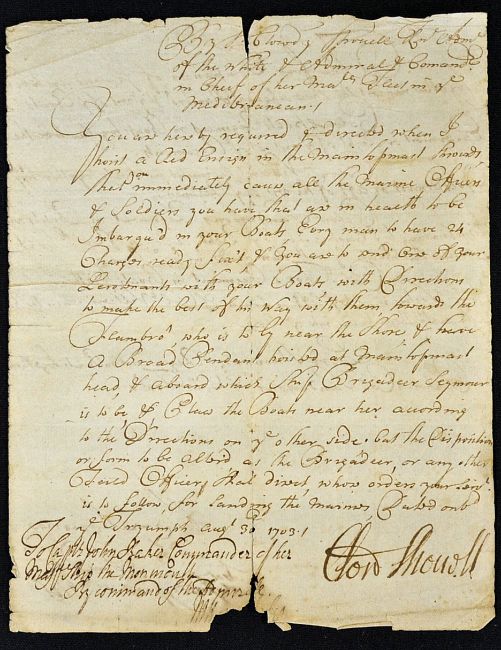 By Sr. Clowdy Shovell Knt. Adm.
of the White & Admiral & Comandr.
in Cheif of her Ma.tys Fleet in ye
Mediteranean.
You are hereby required & directed when I
hoist a Red Ensign in the Maintopmast Shrouds,
that you immediately cause all the Marine Officers
& Soldiers you have that are in health to be
Imbarqu'd in your Boats Every man to have 24
Charges ready & you are to send One of your
Lieutenants with your Boats with Directions
to make the best of his Way with them towards the
Flambro', who is to ly near the Shore & have
A Broad Pendant hoisted at Maintopmast
head, & aboard which Ship Brigadeer Seymour
is to be, & Place the Boats near her according
to the Directions on ye other side, but the Disposition
or form to be alter'd as the Brigadeer, or any other
Feild Officers shal direct, whose orders your Lieut.
is to follow for landing the Marines, Dated onb.
ye Tryumph Augt. 30 1703.
To Capt. John Baker Commander of her
Ma.tys Ship the Monmouth
By command of the Admirall.
Clowd Shovell